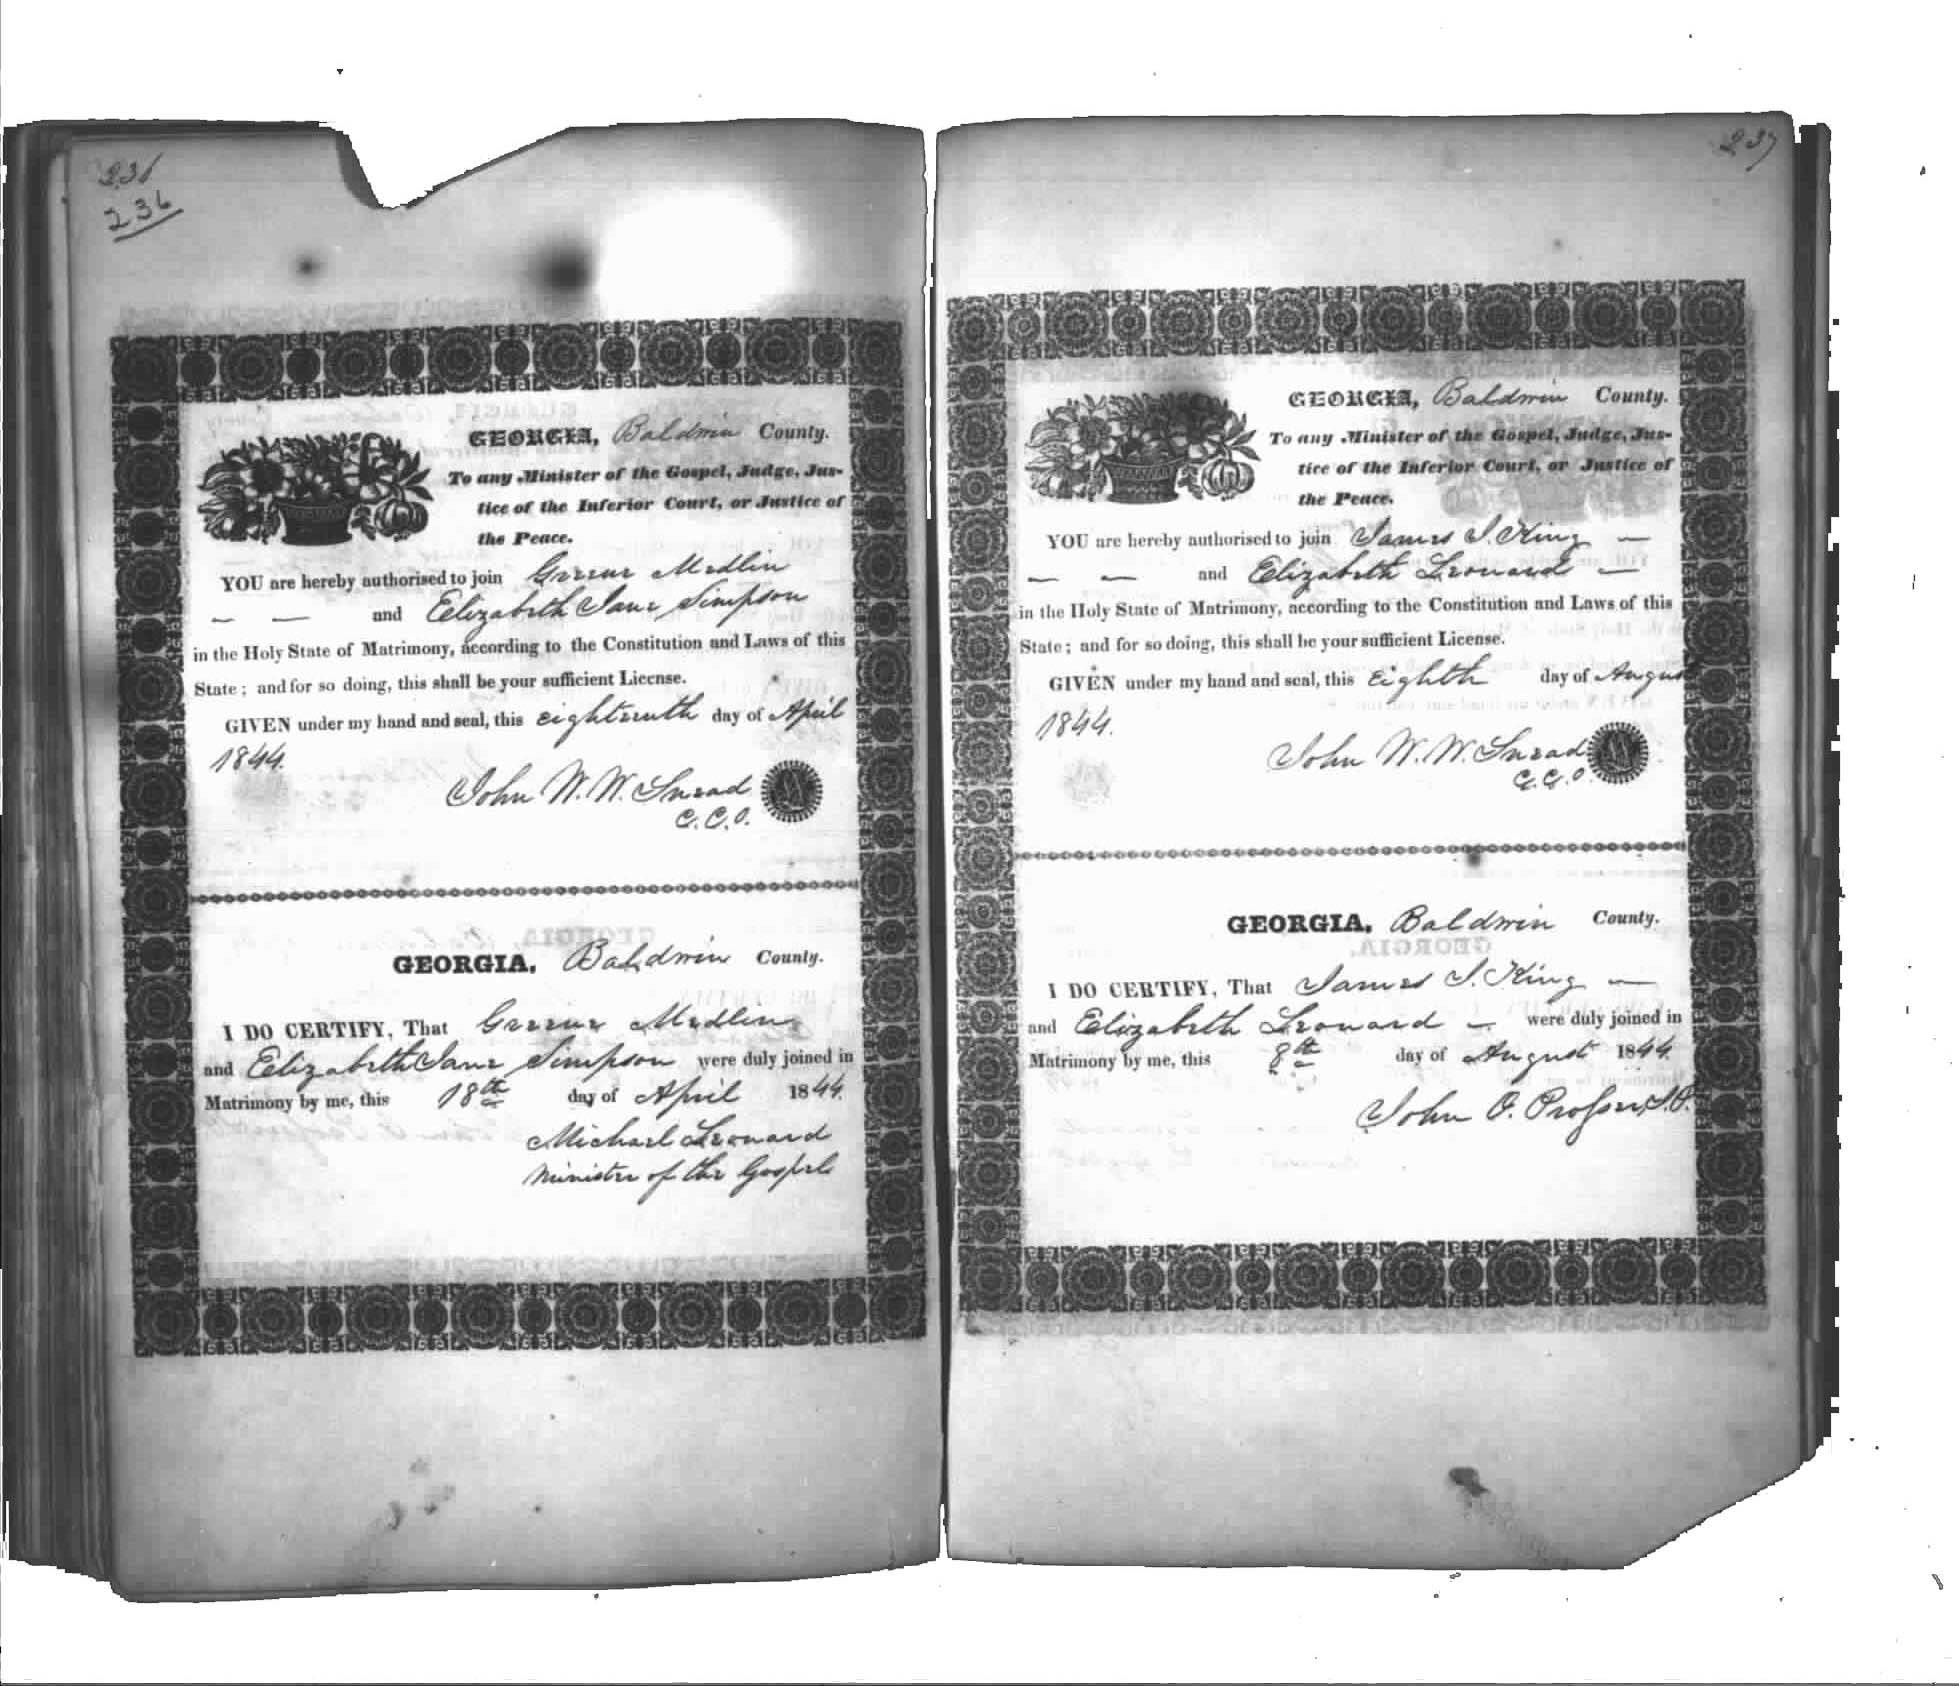 236
236
GEORGIA, Baldwin County.
To any Minister of the Gospel, Judge, Jus-
tice of the Inferior Court, or Justice of
the Peace.
YOU are hereby authorised to join Greene Medlin
— — and Elizabeth Jane Simpson
in the Holy State of Matrimony, according to the Constitution and Laws of this
State; and for so doing, this shall be your sufficient License.
GIVEN under my hand and seal, this eighteenth day of April
1844.
John W. W. Snead
C.C.O.
GEORGIA, Baldwin County.
I DO CERTIFY, That Greene Medlin
and Elizabeth Jane Simpson were duly joined in
Matrimony by me, this 18th day of April 1844.
Michael Leonard
Minister of the Gospel
237
GEORGIA, Baldwin County.
To any Minister of the Gospel, Judge, Jus-
tice of the Inferior Court, or Justice of
the Peace.
YOU are hereby authorised to join James J. King —
— — and Elizabeth Leonard —
in the Holy State of Matrimony, according to the Constitution and Laws of this
State; and for so doing, this shall be your sufficient License.
GIVEN under my hand and seal, this Eighth day of August
1844.
John W. W. Snead
C.C.O.
GEORGIA, Baldwin County.
I DO CERTIFY, That James J. King —
and Elizabeth Leonard — were duly joined in
Matrimony by me, this 8th day of August 1844.
John O. Prosser, J.P.